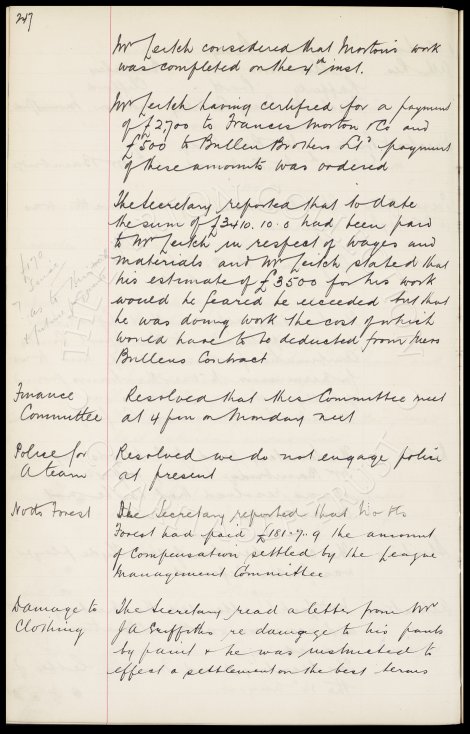 247
Mr Leitch considered that Morton's work
was completed on the 4th inst.
Mr Leitch having certified for a payment
of £2,700 to Francis Morton & Co and
£500 to Bullen Brothers Ld payment
of these amounts was ordered
The Secretary reported that to date
the sum of £3410.10.0 had been paid
to Mr Leitch in respect of wages and
materials and Mr Leitch stated that
his estimate of £3500 for his work
would he feared be exceeded but that
he was doing work the cost of which
would have to be deducted from Messrs
Bullens Contract
Finance
Committee
Resolved that this Committee meet
at 4 pm on Monday next
Police for
A team
Resolved we do not engage police
at present
Notts Forest
The Secretary reported that Notts
Forest had paid £181.7.9 the amount
of Compensation settled by the League
Management Committee
Damage to
Clothing
The Secretary read a letter from Mr
J A Griffiths re damage to his pants
by paint & he was instructed to
effect a settlement on the best terms